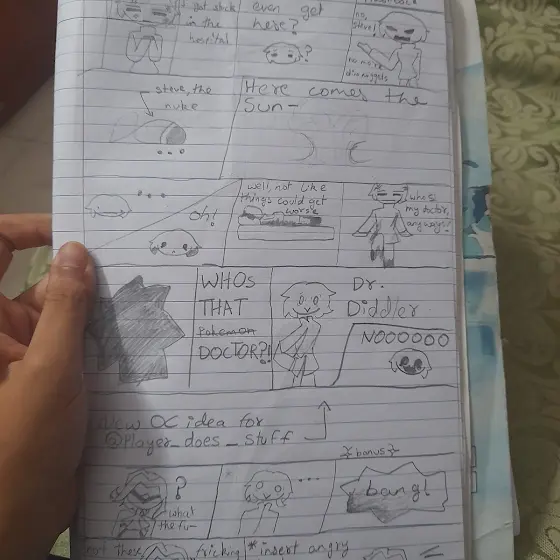 got stuck
in the
hospital
even get
here?
?
no,
steve!
no more
steve, the
nuke
...
Here comes the
Sun-
...
oh!
well, not like
things could get
worse
who's
my doctor,
anyways?
WHOS
THAT
Pokemon
DOCTOR?!
Dr.
Diddler
NOOOOOO
New OC idea for
@Player_does_stuff
*bonus*
?
what
the fu-
...
bang!
not these
fricking
*insert angry